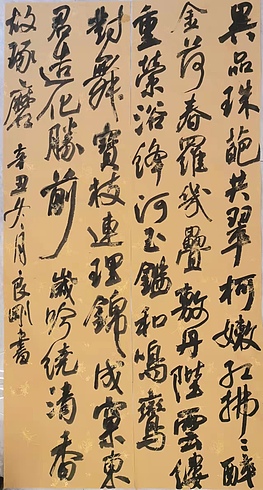 異品珠葩共翠柯嫩紅拂々醉
金荷春羅幾疊敷丹陛雲縷
重榮浴絳河玉鑑和鳴鸞
對舞寶枝連理錦成窠東
君造化勝前歲吟繞清香
故琢磨辛丑冬月良剛書